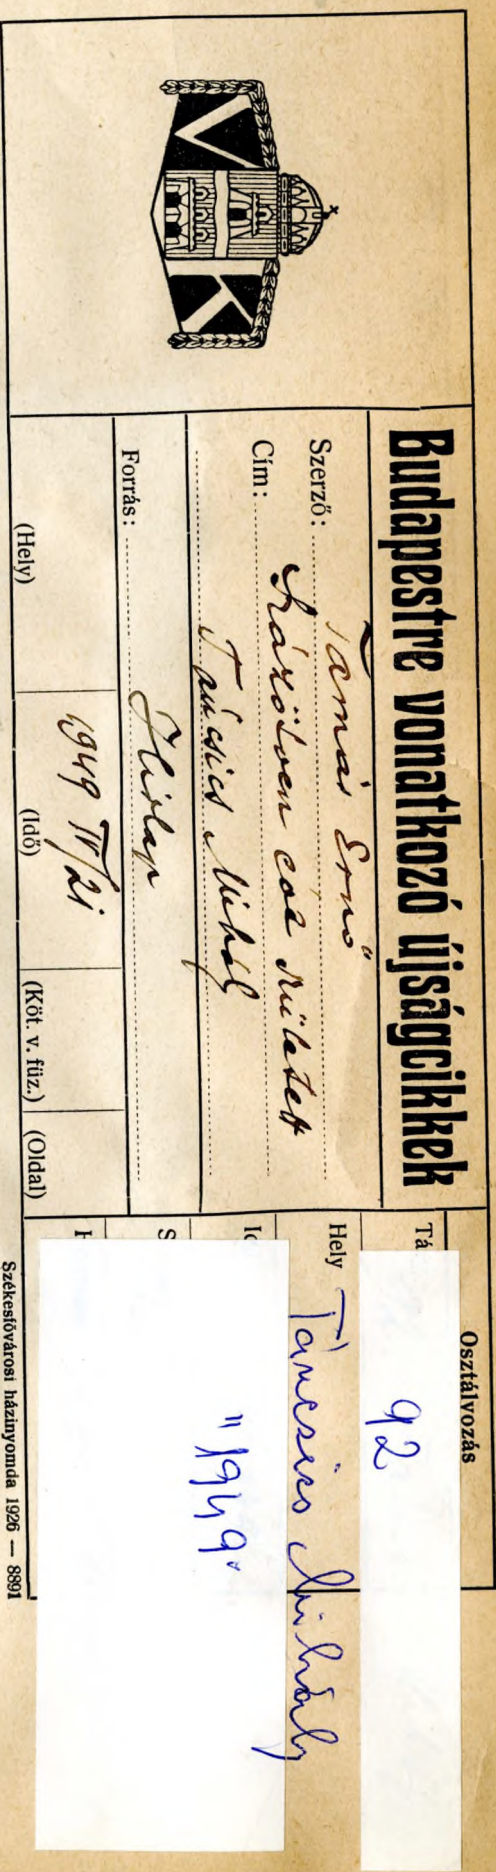 Budapestre vonatkozó újságcikkek
Szerző: Tamás Ernő
Cím: Százötven éve született
Táncsics Mihály
Forrás: Hirlap
1949 IV/21
(Hely) (Idő) (Köt. v. füz.) (Oldal)
Osztályozás
Tá
92
Hely Táncsics Mihály
"1949"
Székesfővárosi házinyomda 1926 — 8891